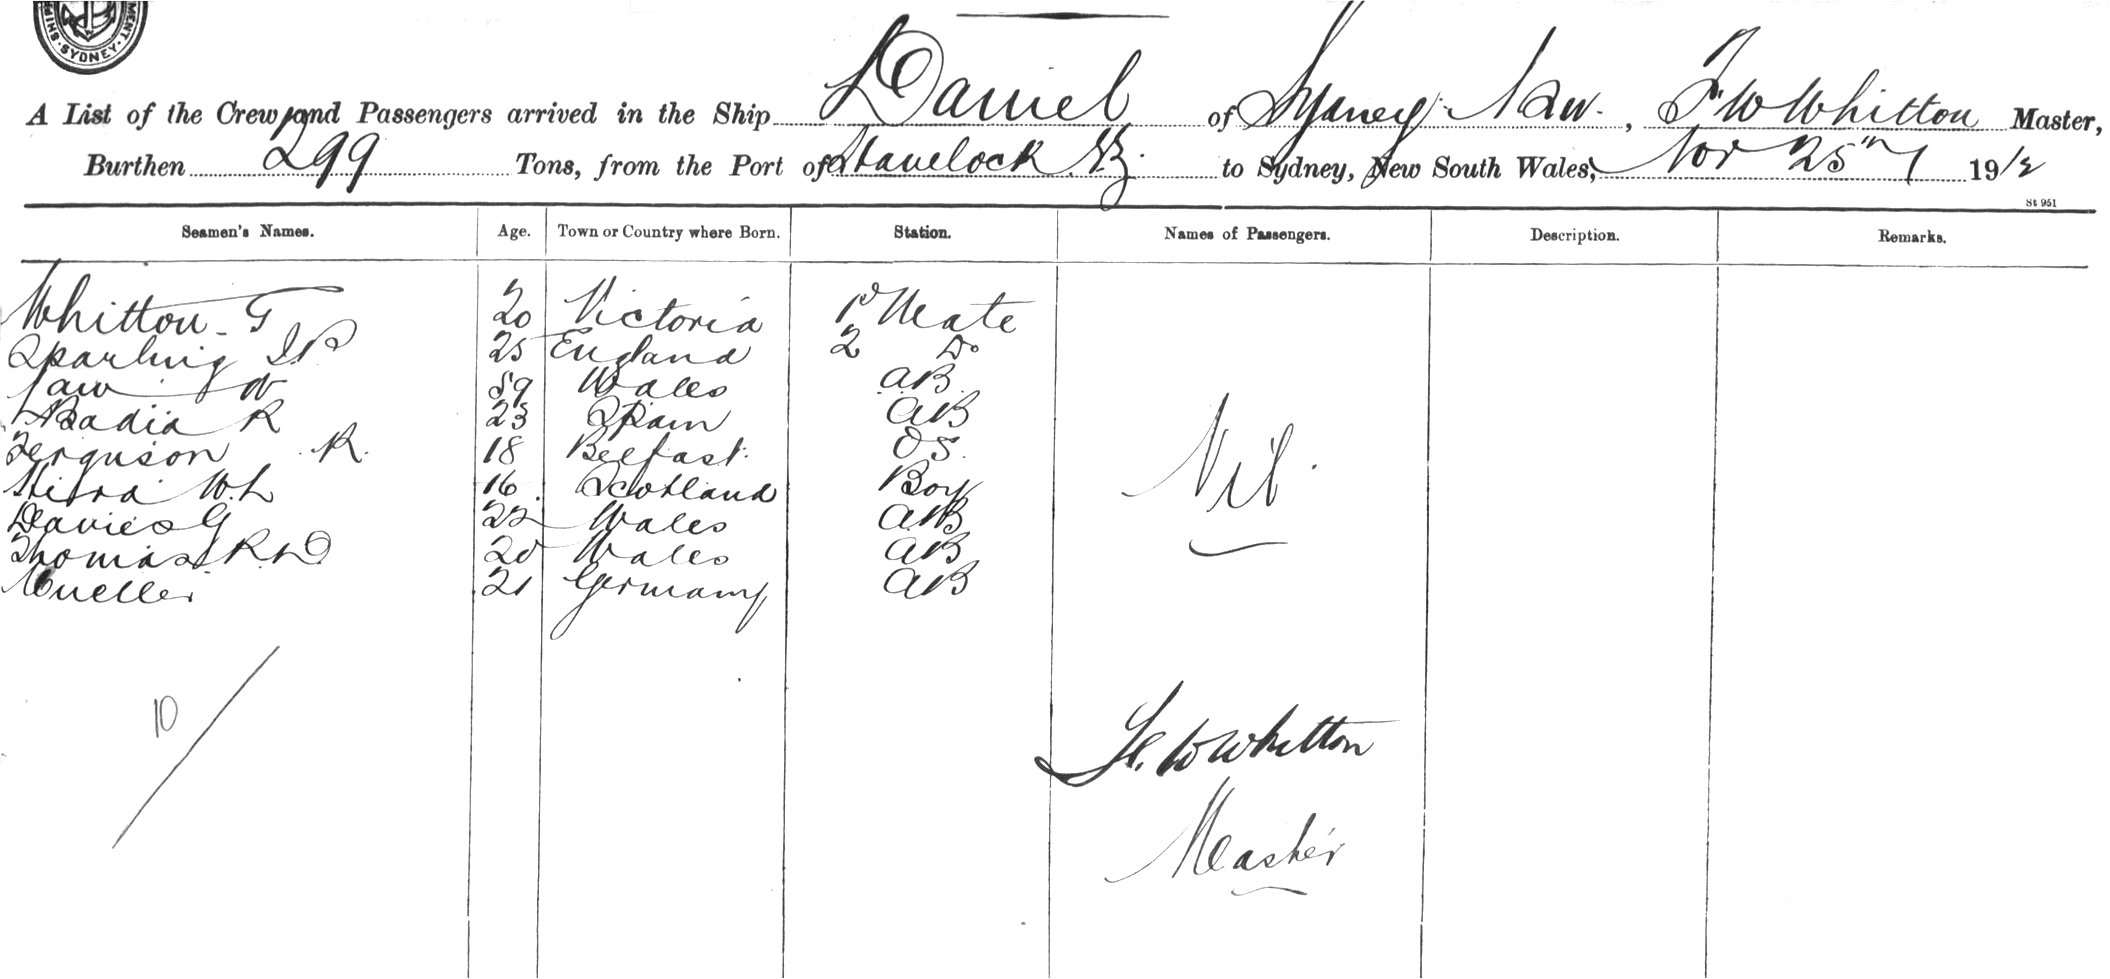 SHIPPING MENT. SYDNEY
A List of the Crew and Passengers arrived in the Ship Daniel of Sydney NSW. , F. W Whitton Master,
Burthen 299 Tons, from the Port of Havelock N.Z. to Sydney, New South Wales, Nov 25th 1912
St 951
Seamen's Names. Age. Town or Country where Born. Station. Names of Passengers. Description. Remarks.
Whitton G 20 Victoria 1st Mate
Sparling 25 England 2 Do
Law W 59 Wales AB
Badia R 23 Spain AB
Ferguson R. 18 Belfast OS.
W. L 16 Scotland Boy
Davies G 22 Wales AB
Thomas R. D 20 Wales AB
Mueller 21 Germany AB
Nil.
10
W Whitton
Master